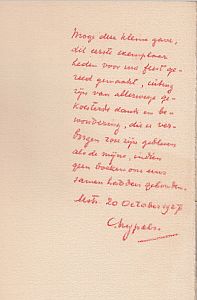 Moge deze kleine gave,
dit eerste exemplaar
heden voor uw feest ge-
reed gemaakt, uiting
zijn van allerwege ge-
koesterde dank en be-
wondering, die is ver-
borgen zou zijn gebleven
als de mijne, indien
geen boeken ons eens
samen hadden gebonden.
20 October 1927